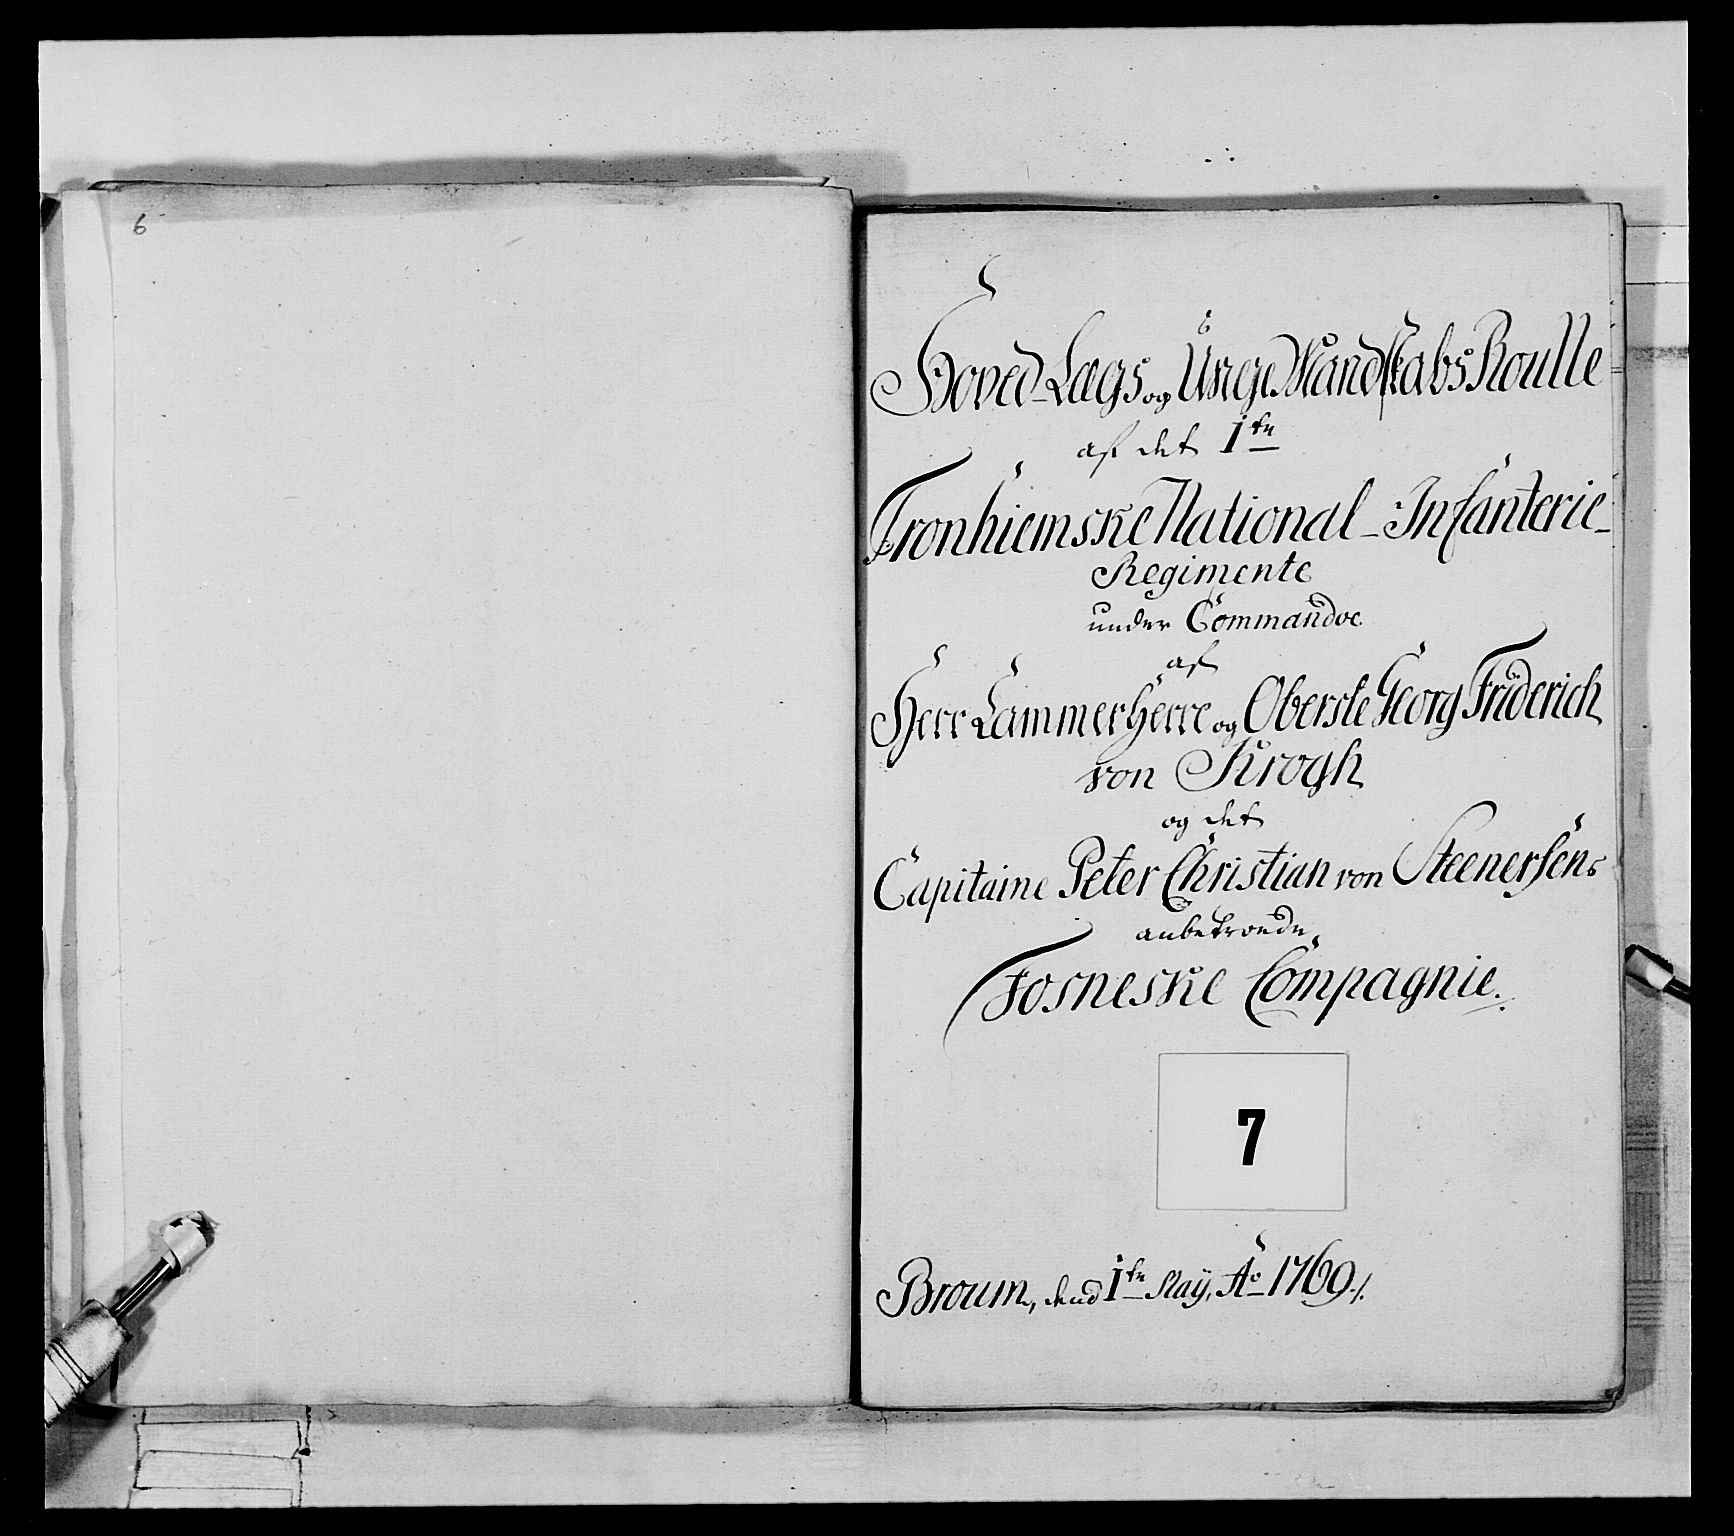 6
Hoved-Lægs og Unge Mandskabs Roulle
af det 1te
Tronhiemske National-Infanterie-
Regimente
under Commandoe
af
Herr Cammerherre og Oberste Georg Friderich
von Krogh
og det
Capitaine Peter Christian von Steenersens
anbetroede
Fosneske Compagnie.
7
Broum, dend 1te May, Ao 1769./.